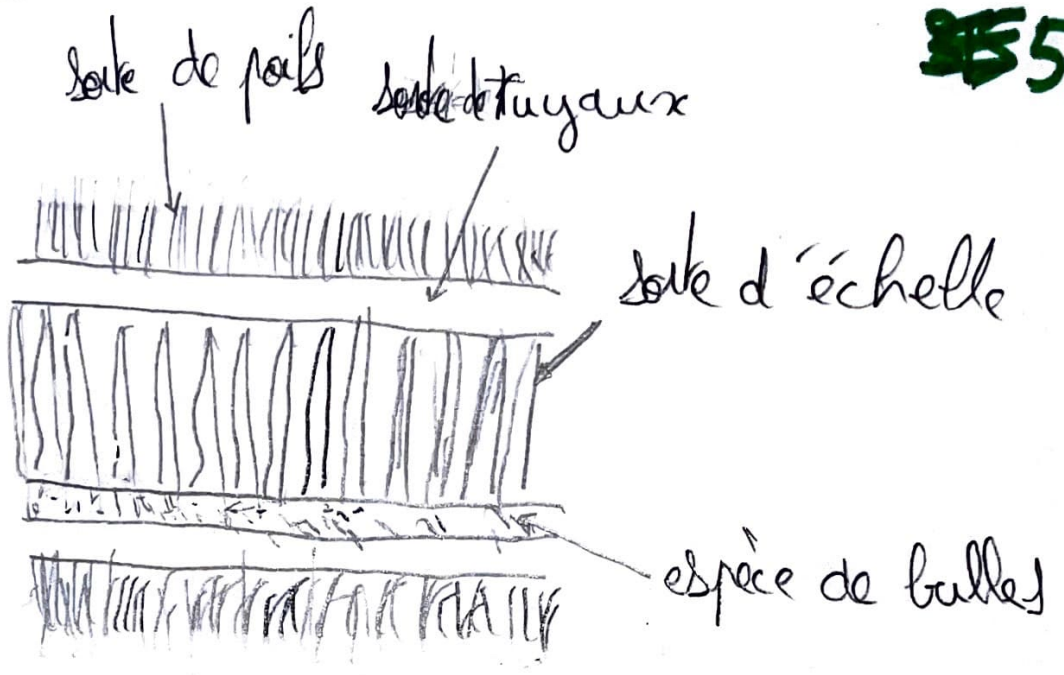 5
sorte de poils
sorte de tuyaux
sorte d'échelle
espèce de bulles